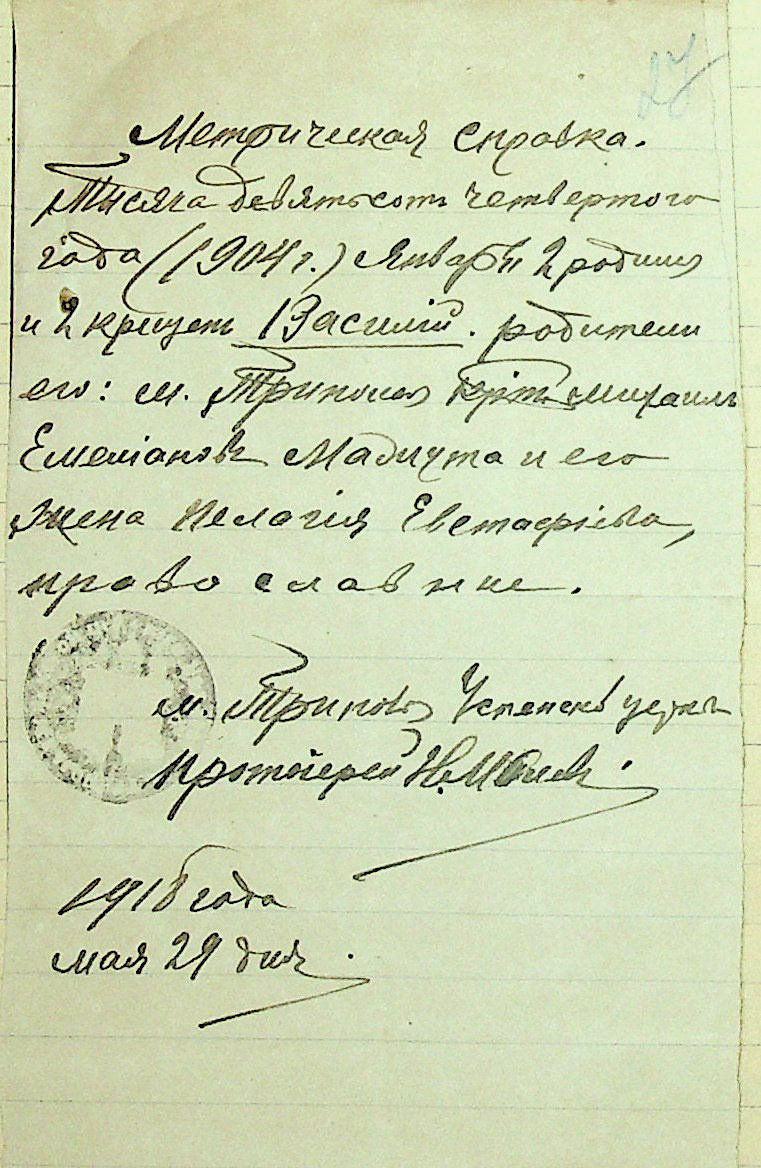 27
Метрическая справка.
Тысяча девятьсотъ четвертого
года (1904 г.) Января 2 родился
и 2 крещенъ Василій. родители
его: м. Триполья крест. Михаилъ
Емеліановъ Мадич́та и его
жена Пелагія Евстафіева,
православные.
м. Триполья Успенск церкви
Протоіерей Н.
1918 года
мая 29 дня.